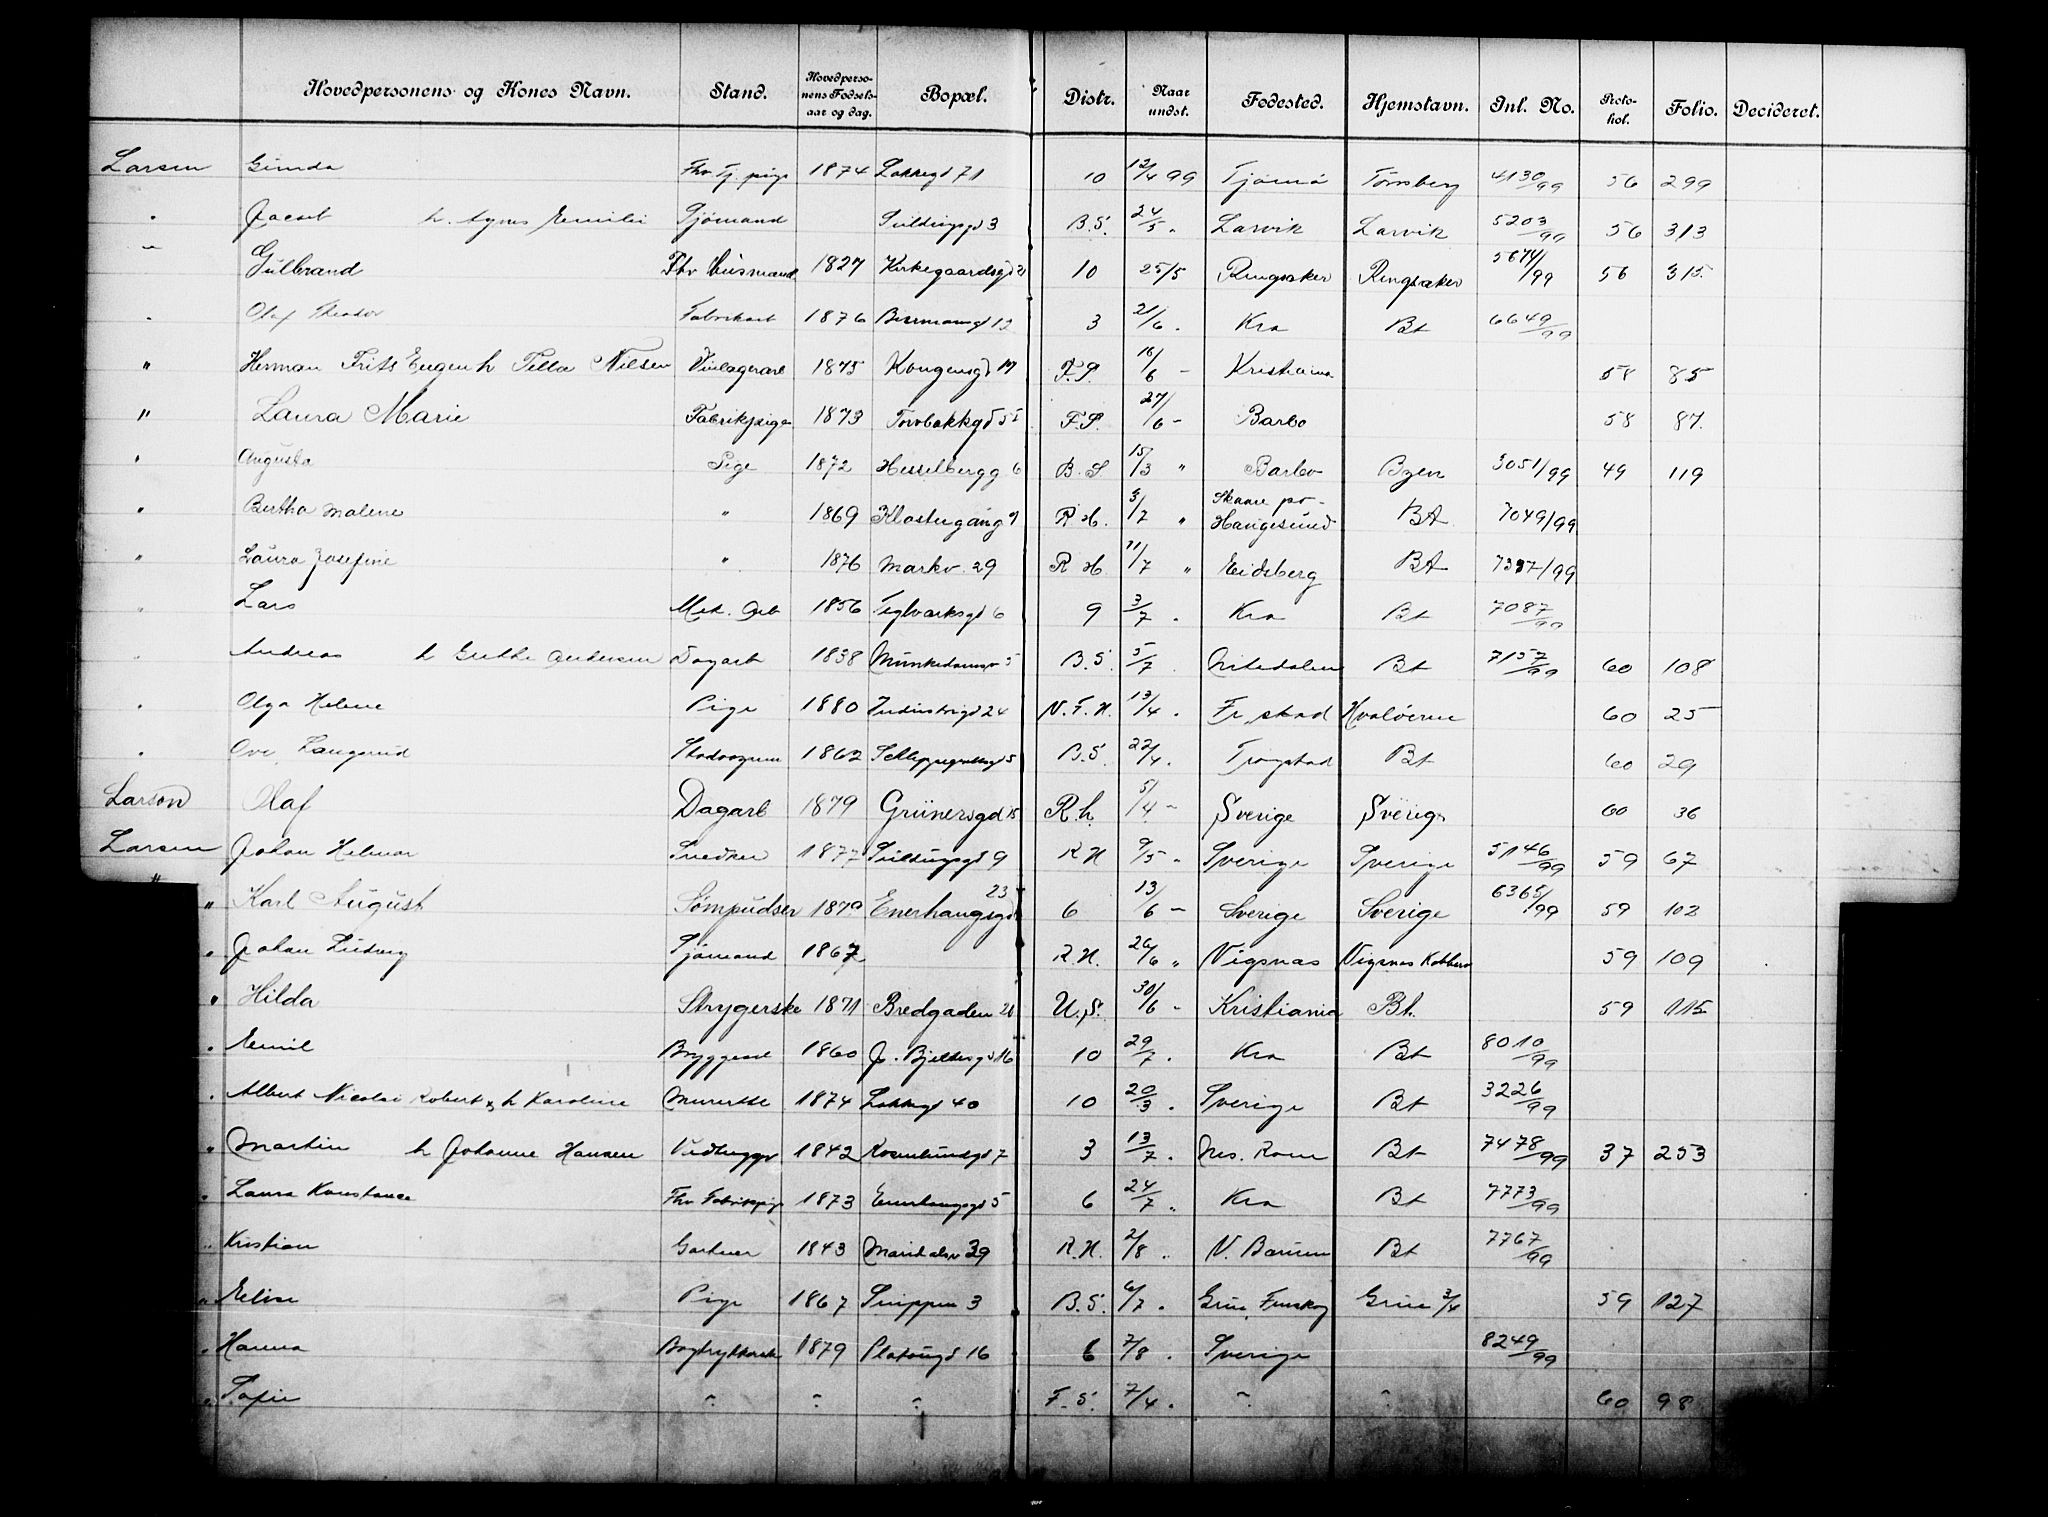 Hovedpersonens og Kones Navn. Stand. Hovedpersonens Fødselsaar og dag. Bopæl. Distr. Naar undst. Fødested. Hjemstavn. Inl. No. Protokol. Folio. Decideret.
Larsen Gunda Fhv. Tj. pige 1874 Lakkegd 71 10 12/4 99 Tjømø Tønsberg 4130/99 56 299
" Jacob h. Agnes Emilie Sjømand 3 B.S. 24/5 " Larvik Larvik 5203/99 56 313
" Gulbrand Fhv Husmand 1827 Kirkegaardsgd 10 25/5 Ringsaker Ringsaker 5674/99 56 315
" Olaf Theodor Fabrikarb 1876 12 3 21/6 " Kra Bt 6649/99
" Herman Frits Eugen h Nilsen Vinlagerarb 1875 Kongensgd 19 F.S. 16/6 - Kristiania 58 85
" Laura Marie Fabrikpige 1873 Torvbakkgd 5 F.S. 27/6 - Barbo 58 87
" Augusta Pige 1872 Hesselbergg 6 B.S. 15/3 " Barbo Bgen 3051/99 49 119
" Bertha Malene " 1869 Klostergang 9 R.H. 3/7 " Skaare pr - Haugesund BA 7049/99
" Laura Josefine " 1876 Markv. 29 R H. 11/7 " Eidsberg BA 7397/99
" Lars Mek. Arb 1856 Teglverksgd 6 9 3/7 . Kra Bt 7087/99
" Andreas h Grethe Andersen Dagarb 1838 Munkedamsv 5 B.S. 5/7 Nitedalen Bt 7157/99 60 108
" Olga Helene Pige 1880 Industrigd 24 N.T.H. 13/4 . Fr.stad Hvaløerne 60 25
" Ove Langerud 1862 Schleppegrellsgd 5 B.S. 22/4 . Trøgstad Bt 60 29
Larson Olaf Dagarb 1879 Grünersgd 15 R.h. 5/4 - Sverige Sverige 60 36
Larsen Johan Helmer Snedker 1877 9 R H 9/5 " Sverige Sverige 5146/99 59 67
" Karl August Sømpudser 1879 Enerhaugsgd 23 6 13/6 - Sverige Sverige 6365/99 59 102
" Johan Ludvig Sjømand 1867 R.H. 26/6 " Vigsnæs Vigsnæs Kobberv 59 109
" Hilda Strygerske 1871 Bredgaden 20 U.S. 30/6 - Kristiania Bt. 59 115
" Emil Bryggearb 1860 J. Bjelkesgd 16 10 29/7 . Kra Bt 8010/99
" Albert Nicolai Robert h Karoline 1874 Lakkegd 40 10 20/3 . Sverige Bt 3226/99
" Martin h Johanne Hansen Vedhugger 1842 Rosenlundgd 7 3 13/7 . Nes. Rom Bt 7478/99 37 253
" Laura Konstance Fhv Fabrikspige 1873 Enerhaugsgd 5 6 24/7 " Kra Bt 7773/99
" Kristian Gartner 1843 Maridalsv 39 R.H. 2/8 " V. Bærum Bt 7767/99
" Elise Pige 1867 Snippen 3 B.S. 6/7 . Grue Finskog Grue 3/4 59 127
" Hanna Bogtrykkersk 1879 Platousgd 16 6 7/8 . Sverige 8249/99
" Sofie " " " F.S. 7/4 . " " 60 98